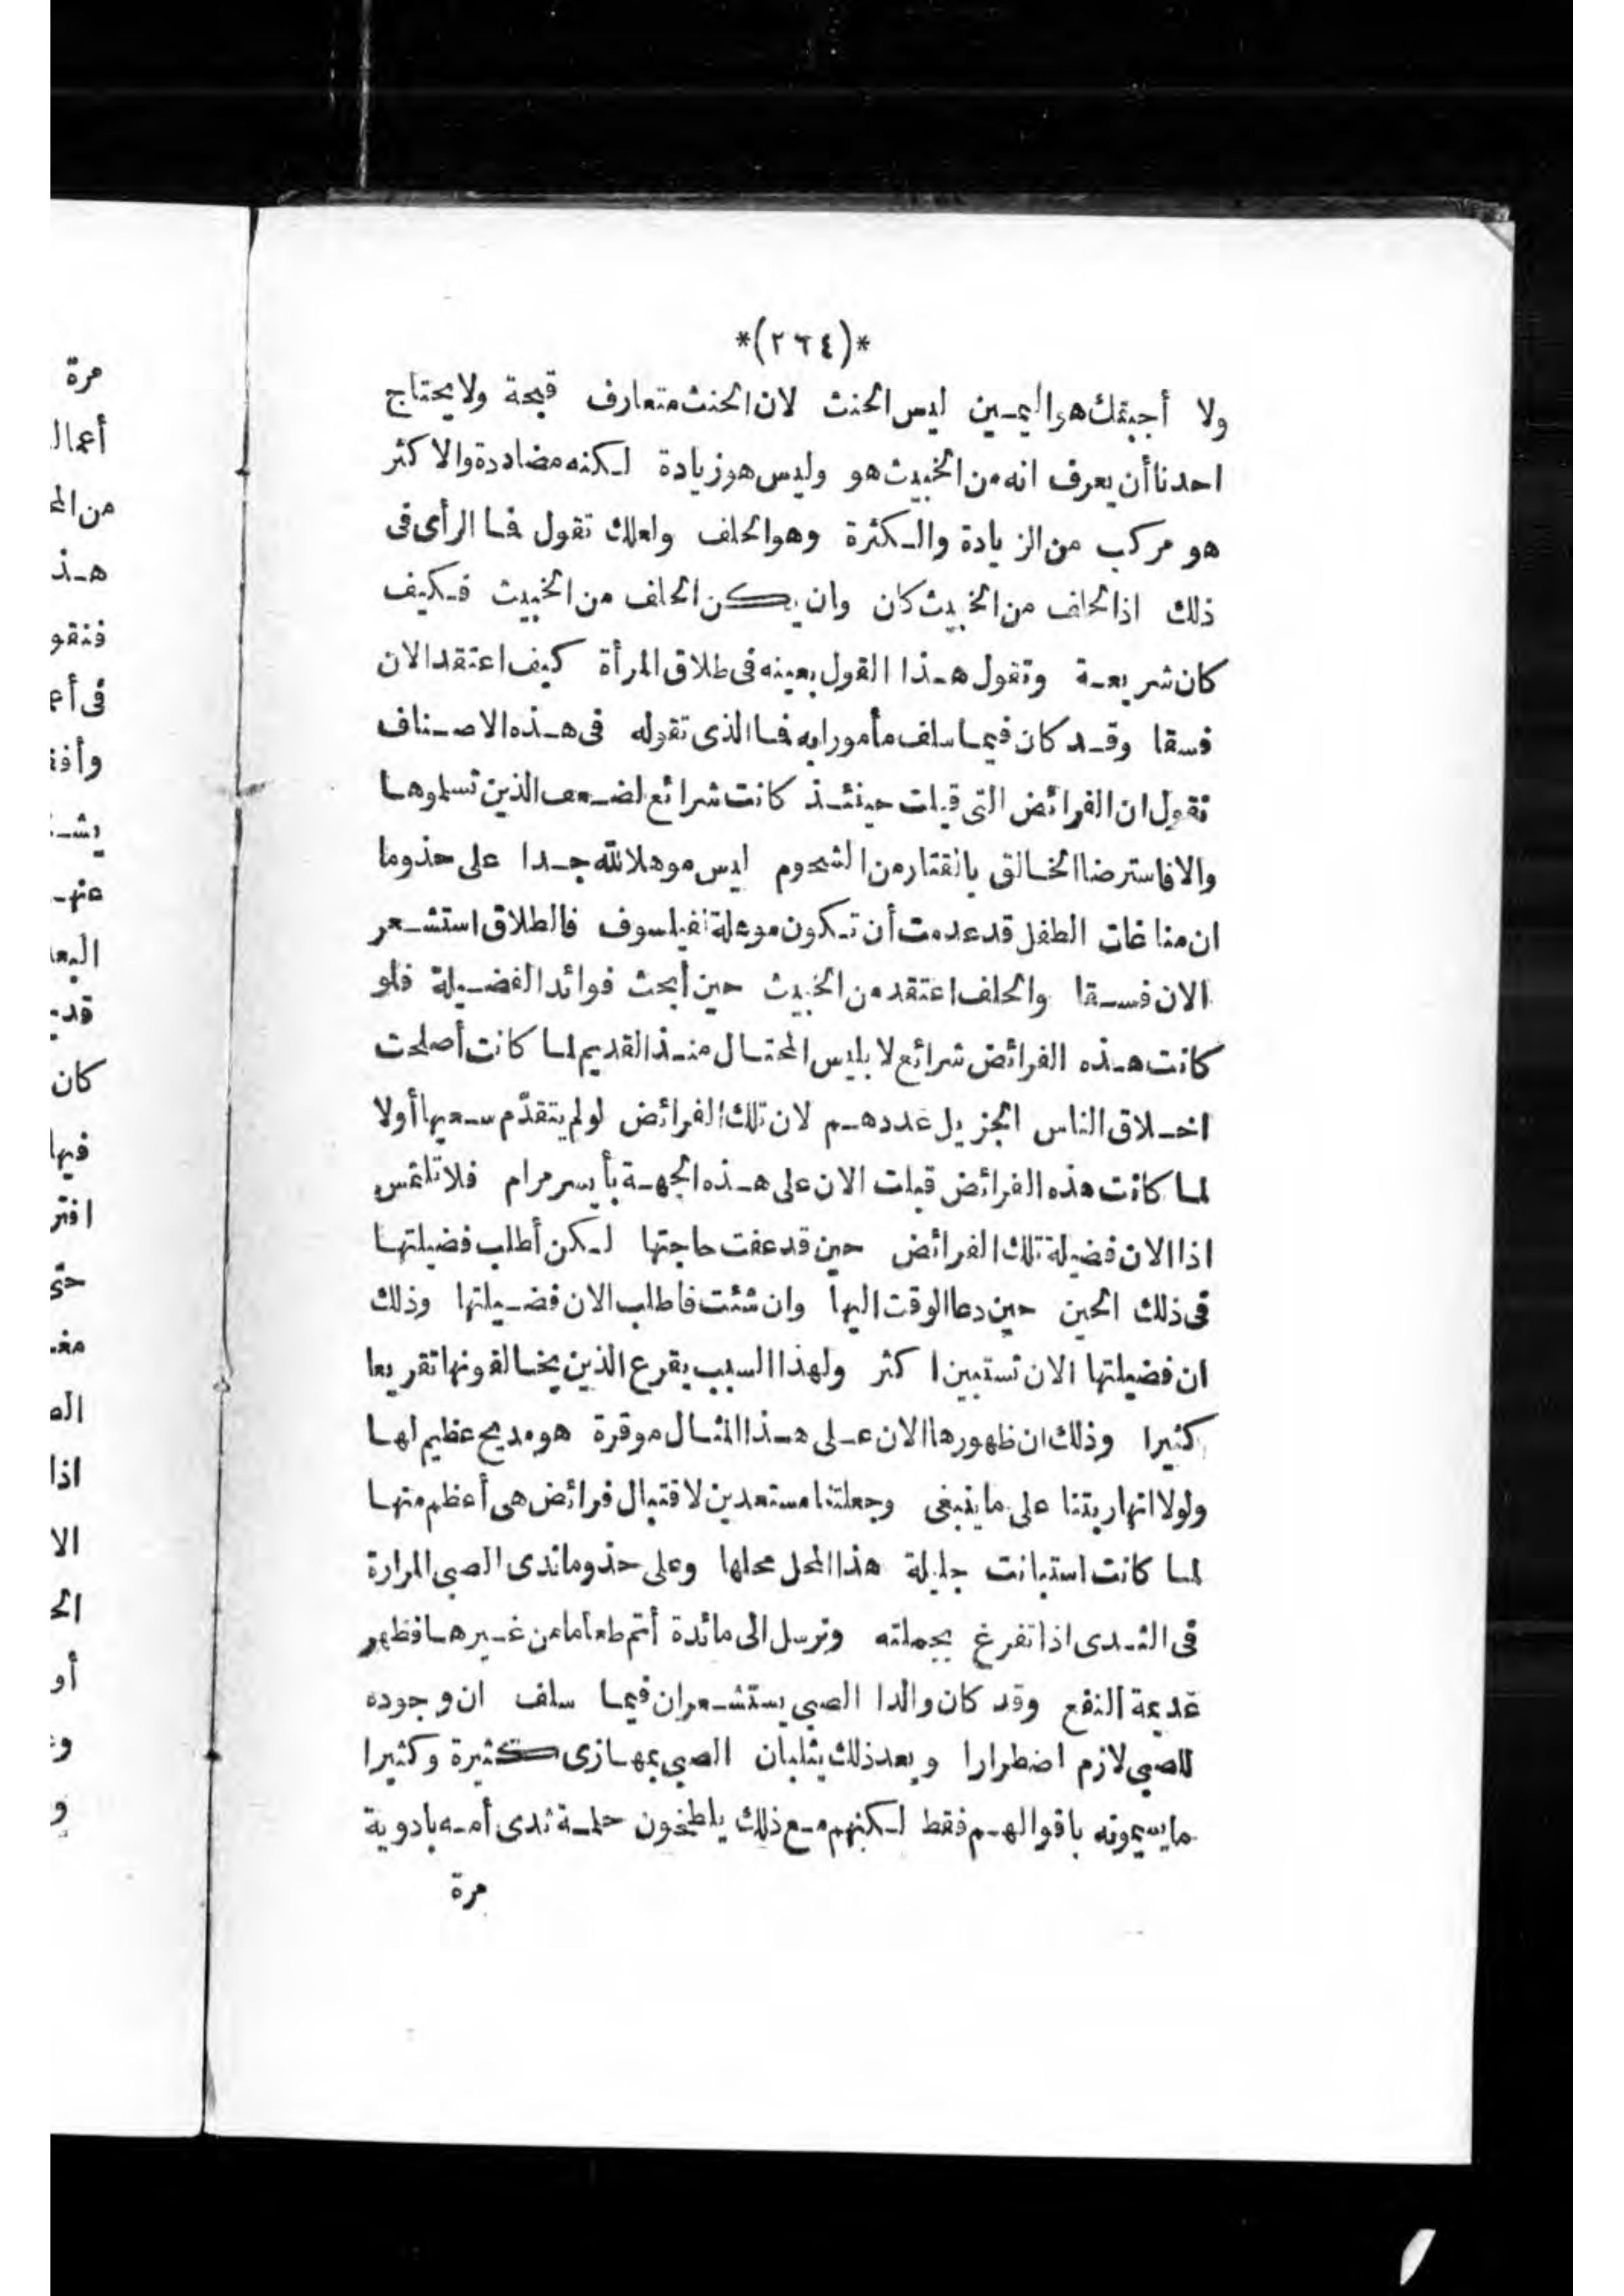 *(٢٦٤)*
ولا أجبتك هو اليمين ليس الحنث لان الحنث متعارف قبحة ولا يحتاج
احدنا أن يعرف انه من الخبيث هو وليس هو زيادة لكنه مضاددة والاكثر
هو مركب من الزيادة والكثرة وهو الحلف ولعلك تقول فما الرأى فى
ذلك اذا الحلف من الخبيث كان وان يكن الحلف من الخبيث فكيف
كان شريعة وتقول هذا القول بعينه فى طلاق المرأة كيف اعتقد الان
فسقا وقد كان فيما سلف مأمورا به فما الذى تقوله فى هذه الاصناف
نقول ان الفرائض التى قيلت حينئذ كانت شرائع لضعف الذين تسلموها
والا فاسترضا الخالق بالقتار من الشحوم ليس موهلا لله جدا على حذو ما
ان مناغات الطفل قد عدمت أن تكون موهلة لفيلسوف فالطلاق استشعر
الان فسقا والحلف اعتقد من الخبيث حين أبحث فوائد الفضيلة فلو
كانت هذه الفرائض شرائع لابليس المحتال منذ القديم لما كانت أصلحت
اخلاق الناس الجزيل عددهم لان تلك الفرائض لو لم يتقدّم سعيها أولا
لما كانت هذه الفرائض قبلت الان على هذه الجهة بأيسر مرام فلا تلتمس
اذا الان فضيلة تلك الفرائض حين قد عفت حاجتها لكن أطلب فضيلتها
فى ذلك الحين حين دعا الوقت اليها وان شئت فاطلب الان فضيلتها وذلك
ان فضيلتها الان تستبين اكثر ولهذا السبب يقرع الذين يخالفونها تقريعا
كثيرا وذلك ان ظهورها الان على هذا المثال موقرة هو مديح عظيم لها
ولولا انها ربتنا على ما ينبغى وجعلتنا مستعدين لاقتبال فرائض هى أعظم منها
لما كانت استبانت جليلة هذا المحل محلها وعلى حذو ماندى الصبى المرارة
فى الثدى اذا تفرغ بجملته وترسل الى مائدة أتم طعاما من غيرها فظهر
عديمة النفع وقد كان والدا الصبى يستشعران فيما سلف ان وجوده
للصبى لازم اضطرارا وبعد ذلك يثلبان الصبى بمهازى كثيرة وكثيرا
ما يسمونه باقوالهم فقط لكنهم مع ذلك يلطخون حلمة ثدى أمه بادوية
مرة
مرة